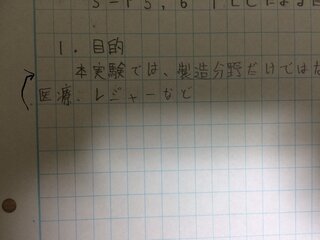 1. 目的
本実験では、製造分野だけではな
医療、レジャーなど